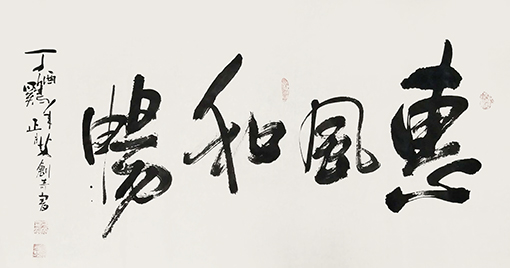 惠風和暢
丁酉雞年正月艾劍書